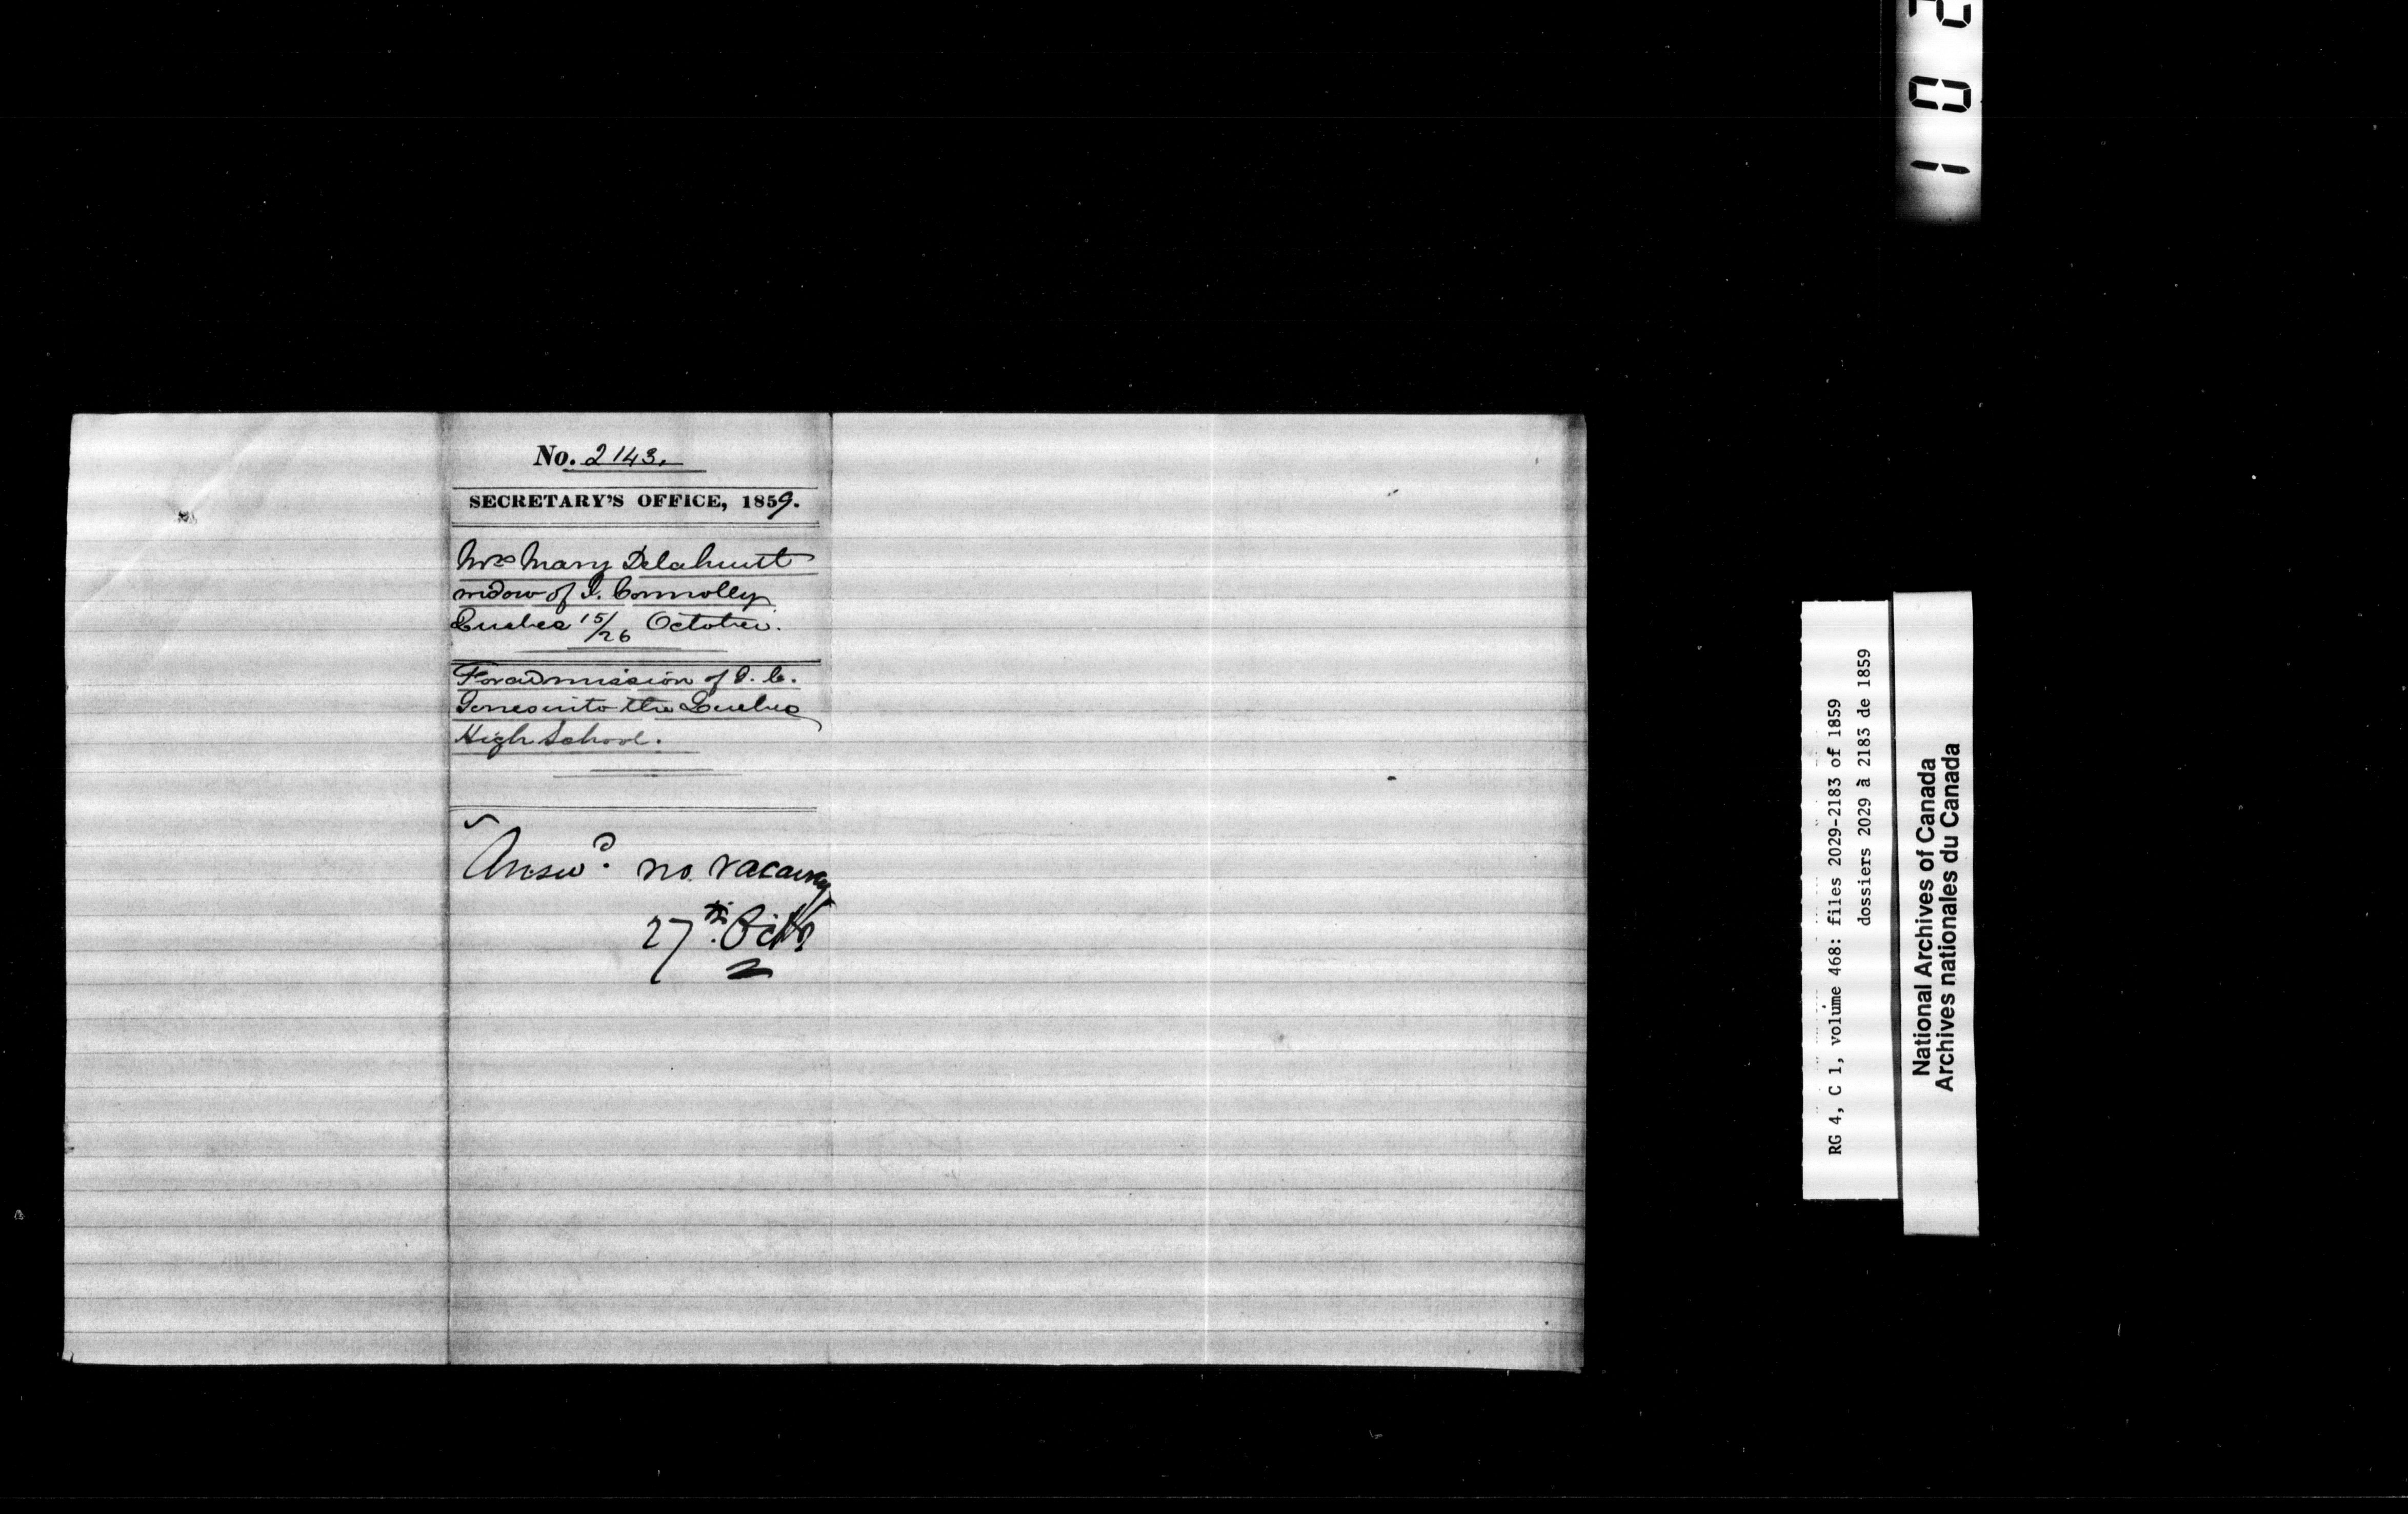 No. 2143.
SECRETARY'S OFFICE, 1859.
Mrs Mary Delahunt
widow of J. Connolly
Quebec 15/26 October.
For admission of J. C.
Jones into the Quebec
High School.
Answd. no vacancy
27th. Octr.
RG 4, C 1, volume 468: files 2029-2183 of 1859
dossiers 2029 à 2183 de 1859
National Archives of Canada
Archives nationales du Canada
1 0 2